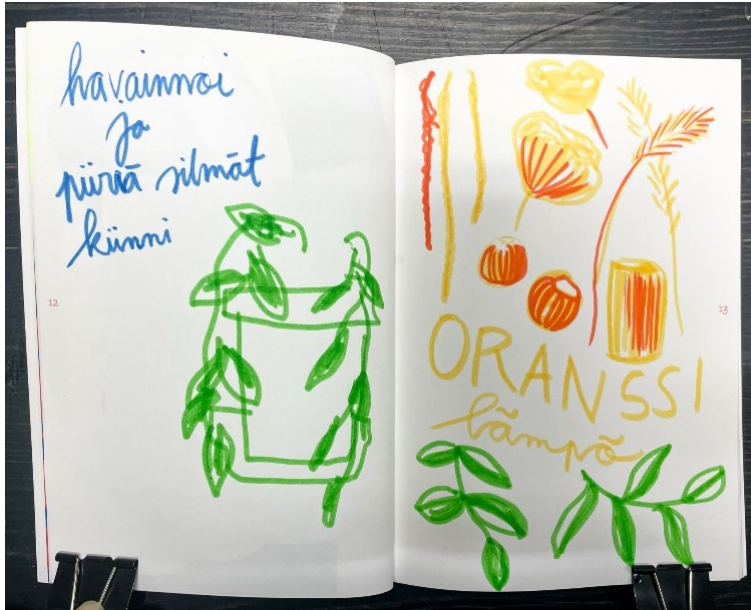 havainnoi
ja
piirrä silmät
kiinni
12
ORANSSI
lämpö
13